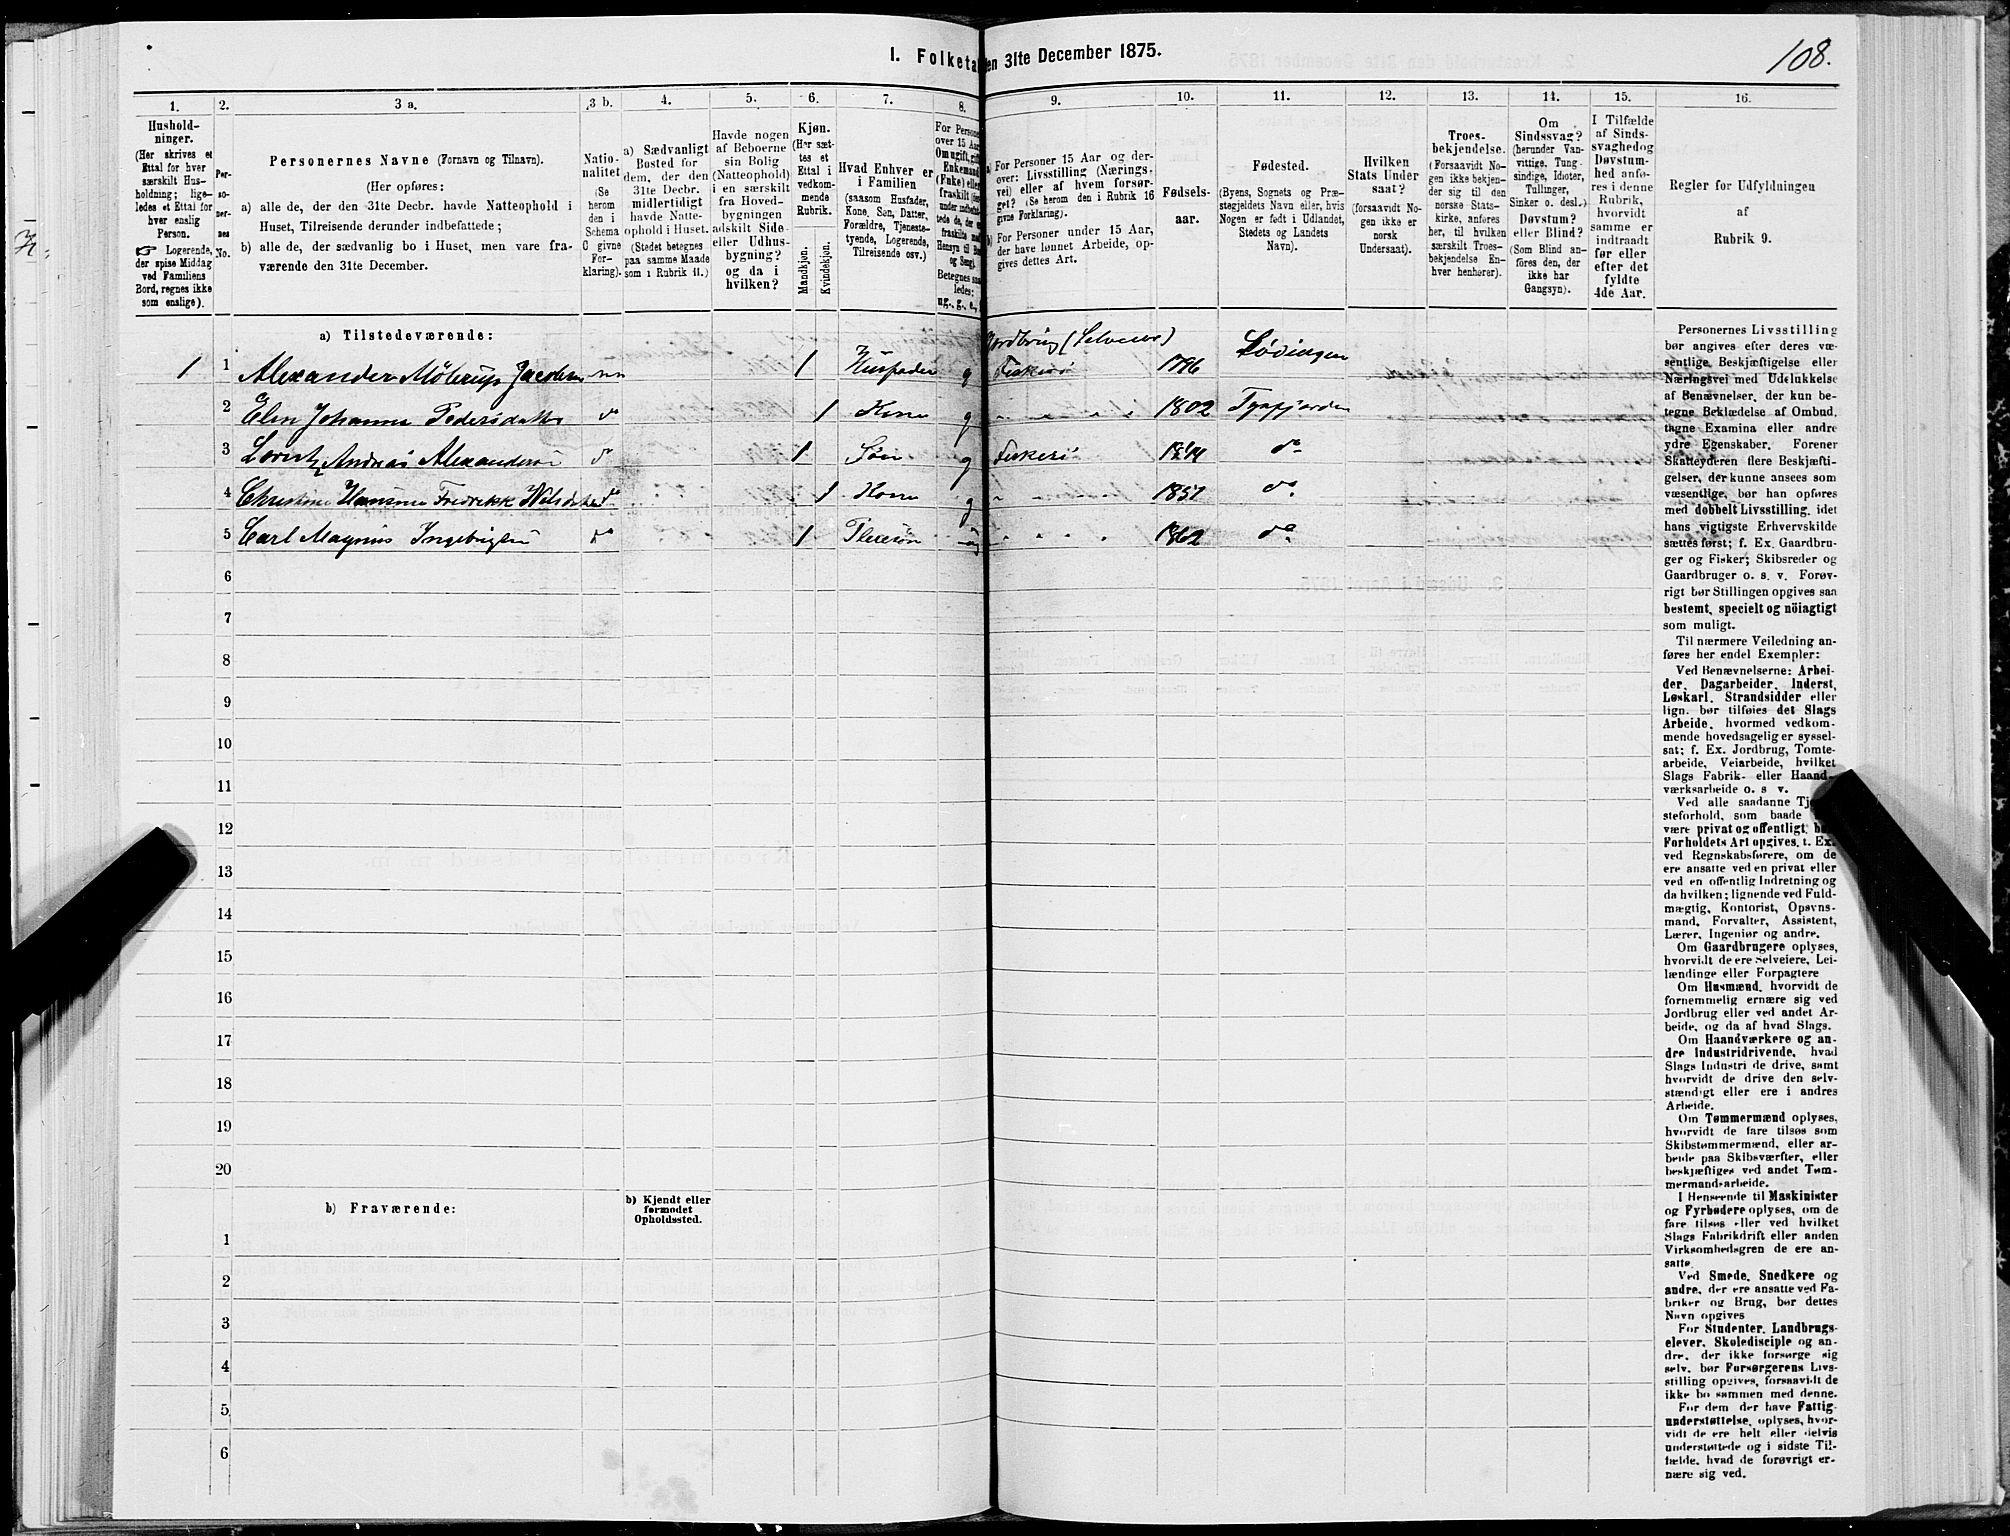 I. Folketa en 31te December 1875.
108.
1. 2. 3 a. 3 b. 4. 5. 6. 7. 8. 9. 10. 11. 12. 13. 14. 15. 16.
Hushold-
ninger.
(Her skrives et
Ettal for hver
særskilt Hus-
holdning; lige-
ledes et Ettal for
hver enslig
Person.
☞ Logerende,
der spise Middag
ved Familiens
Bord, regnes ikke
som enslige).
Per-
so-
ner-
nes
No.
Personernes Navne (Fornavn og Tilnavn).
(Her opføres:
a) alle de, der den 31te Decbr. havde Natteophold i
Huset, Tilreisende derunder indbefattede;
b) alle de, der sædvanlig bo i Huset, men vare fra-
værende den 31te December.
Natio-
nalitet
(Se
herom
den i
Schema
C givne
For-
klaring).
a) Sædvanligt
Bosted for
dem, der den
31te Decbr.
midlertidigt
havde Natte-
ophold i Huset.
(Stedet betegnes
paa samme Maade
som i Rubrik 11.)
Havde nogen
af Beboerne
sin Bolig
(Natteophold)
i en særskilt
fra Hoved-
bygningen
adskilt Side-
eller Udhus-
bygning?
og da i
hvilken?
Kjøn.
(Her sæt-
tes et
Ettal i
vedkom-
mende
Rubrik.
Mandkjøn.
Kvindekjøn.
Hvad Enhver er
i Familien
(saasom Husfader,
Kone, Søn, Datter,
Forældre, Tjeneste-
tyende, Logerende,
Tilreisende osv.)
For Persone
over 15 Aar
Om ugift, gift,
Enkemand
(Enke) eller
fraskilt
Betegnes saa-
ledes:
ug., g., e.,
a) For Personer 15 Aar og der-
over: Livsstilling (Nærings-
vei) eller af hvem forsør-
get? (Se herom den i Rubrik 16
givne Forklaring).
b) For Personer under 15 Aar,
der have lønnet Arbeide, op-
gives dettes Art.
Fødsels-
aar.
Fødested.
(Byens, Sognets og Præ-
stegjeldets Navn eller, hvis
Nogen er født i Udlandet,
Stedets og Landets
Navn).
Hvilken
Stats Under
saat?
(forsaavidt No-
gen ikke er
norsk
Undersaat).
Troes-
bekjendelse.
(Forsaavidt No-
gen ikke bekjen-
der sig til den
norske Stats-
kirke, anføres
her, til hvilken
særskilt Troes-
bekjendelse En-
hver henhører).
Om
Sindssvag?
(herunder Van-
vittige, Tung-
sindige, Idioter,
Tullinger,
Sinker o. desl.)
Døvstum?
eller Blind?
(Som Blind an-
føres den, der
ikke har
Gangsyn).
I Tilfælde
af Sinds-
svaghed og
Døvstum-
hed anfø-
res i denne
Rubrik,
hvorvidt
samme er
indtraadt
før eller
efter det
fyldte
4de Aar.
Regler for Udfyldningen
af
Rubrik 9.
a) Tilstedeværende:
Jordbrug (Selveier)
1 1 Alexander Møterup Jacobsen nn 1 Husfader g Fiskeri 1796 Lødingen
2 Elen Johanna Pedersdatter do 1 Kone g " " " " 1802 Tysfjorden
3 Lorentz Andreas Alexandersen do 1 Søn g Fiskeri 1841 do
4 Christine Hansine Fredrikk Nilsdatter do 1 Kone g " " " " 1851 do
5 Carl Magnus Ingebrigtsen do 1 Pleiesøn ug " " " " 1862 do
6
7
8
9
10
11
12
13
14
15
16
17
18
19
20
b) Fraværende:
b) Kjendt eller
formodet
Opholdssted.
1
2
3
4
5
6
Personernes Livsstilling
bør angives efter deres væ-
sentlige Beskjæftigelse eller
Næringsvei med Udelukkelse
af Benævnelser, der kun be-
tegne Beklædelse af Ombud,
tagne Examina eller andre
ydre Egenskaber. Forener
Skatteyderen flere Beskjæfti-
gelser, der kunne ansees som
væsentlige, bør han opføres
med dobbelt Livsstilling, idet
hans vigtigste Erhvervskilde
sættes først; f. Ex. Gaardbru-
ger og Fisker; Skibsreder og
Gaardbruger o. s. v. Forøv-
rigt bør Stillingen opgives saa
bestemt, specielt og nöiagtigt
som muligt.
Til nærmere Veiledning an-
føres her endel Exempler:
Ved Benævnelserne: Arbei-
der, Dagarbeider, Inderst,
Løskarl, Strandsidder eller
lign. bør tilføies det Slags
Arbeide, hvormed vedkom-
mende hovedsagelig er syssel-
sat; f. Ex. Jordbrug, Tomte-
arbeide, Veiarbeide, hvilket
Slags Fabrik- eller Haand-
værksarbeide o. s v.
Ved alle saadanne Tj
steforhold, som baade
være privat og offentligt, bø
Forholdets Art opgives, t. Ex.
ved Regnskabsførere, om de
ere ansatte ved en privat eller
ved en offentlig Indretning og
da hvilken; lignende ved Fuld-
mægtig, Kontorist, Opsyns-
mand, Forvalter, Assistent,
Lærer, Ingeniør og andre.
Om Gaardbrugere oplyses,
hvorvidt de ere Selveiere, Lei-
lændinge eller Forpagtere
Om Husmænd, hvorvidt de
fornemmelig ernære sig ved
Jordbrug eller ved andet Ar-
beide, og da af hvad Slags.
Om Haandværkere og an-
dre Industridrivende, hvad
Slags Industri de drive, samt
hvorvidt de drive den selv-
stændigt eller ere i andres
Arbeide.
Om Tømmermænd oplyses,
hvorvidt de fare tilsøs som
Skibstømmermænd, eller ar-
beide paa Skibsværfter, eller
beskjæftiges ved andet Tøm-
mermandsarbeide.
I Henseende til Maskinister
og Fyrbødere oplyses, om de
fare tilsøs eller ved hvilket
Slags Fabrikdrift eller anden
Virksomhedsgren de ere an-
satte.
Ved Smede, Snedkere og
andre, der ere ansatte ved Fa-
briker og Brug, bør dettes
Navn opgives
For Studenter, Landbrugs-
elever, Skoledisciple og an-
dre, der ikke forsørge sig
selv, bør Forsørgerens Livs-
stilling opgives, forsaavidt de
ikke bo sammen med denne.
For dem der have Fattig-
understøttelse, oplyses, hvor-
vidt de ere helt eller delvis
understøttede og i sidste Til-
fælde, hvad de forøvrigt er-
nære sig ved.